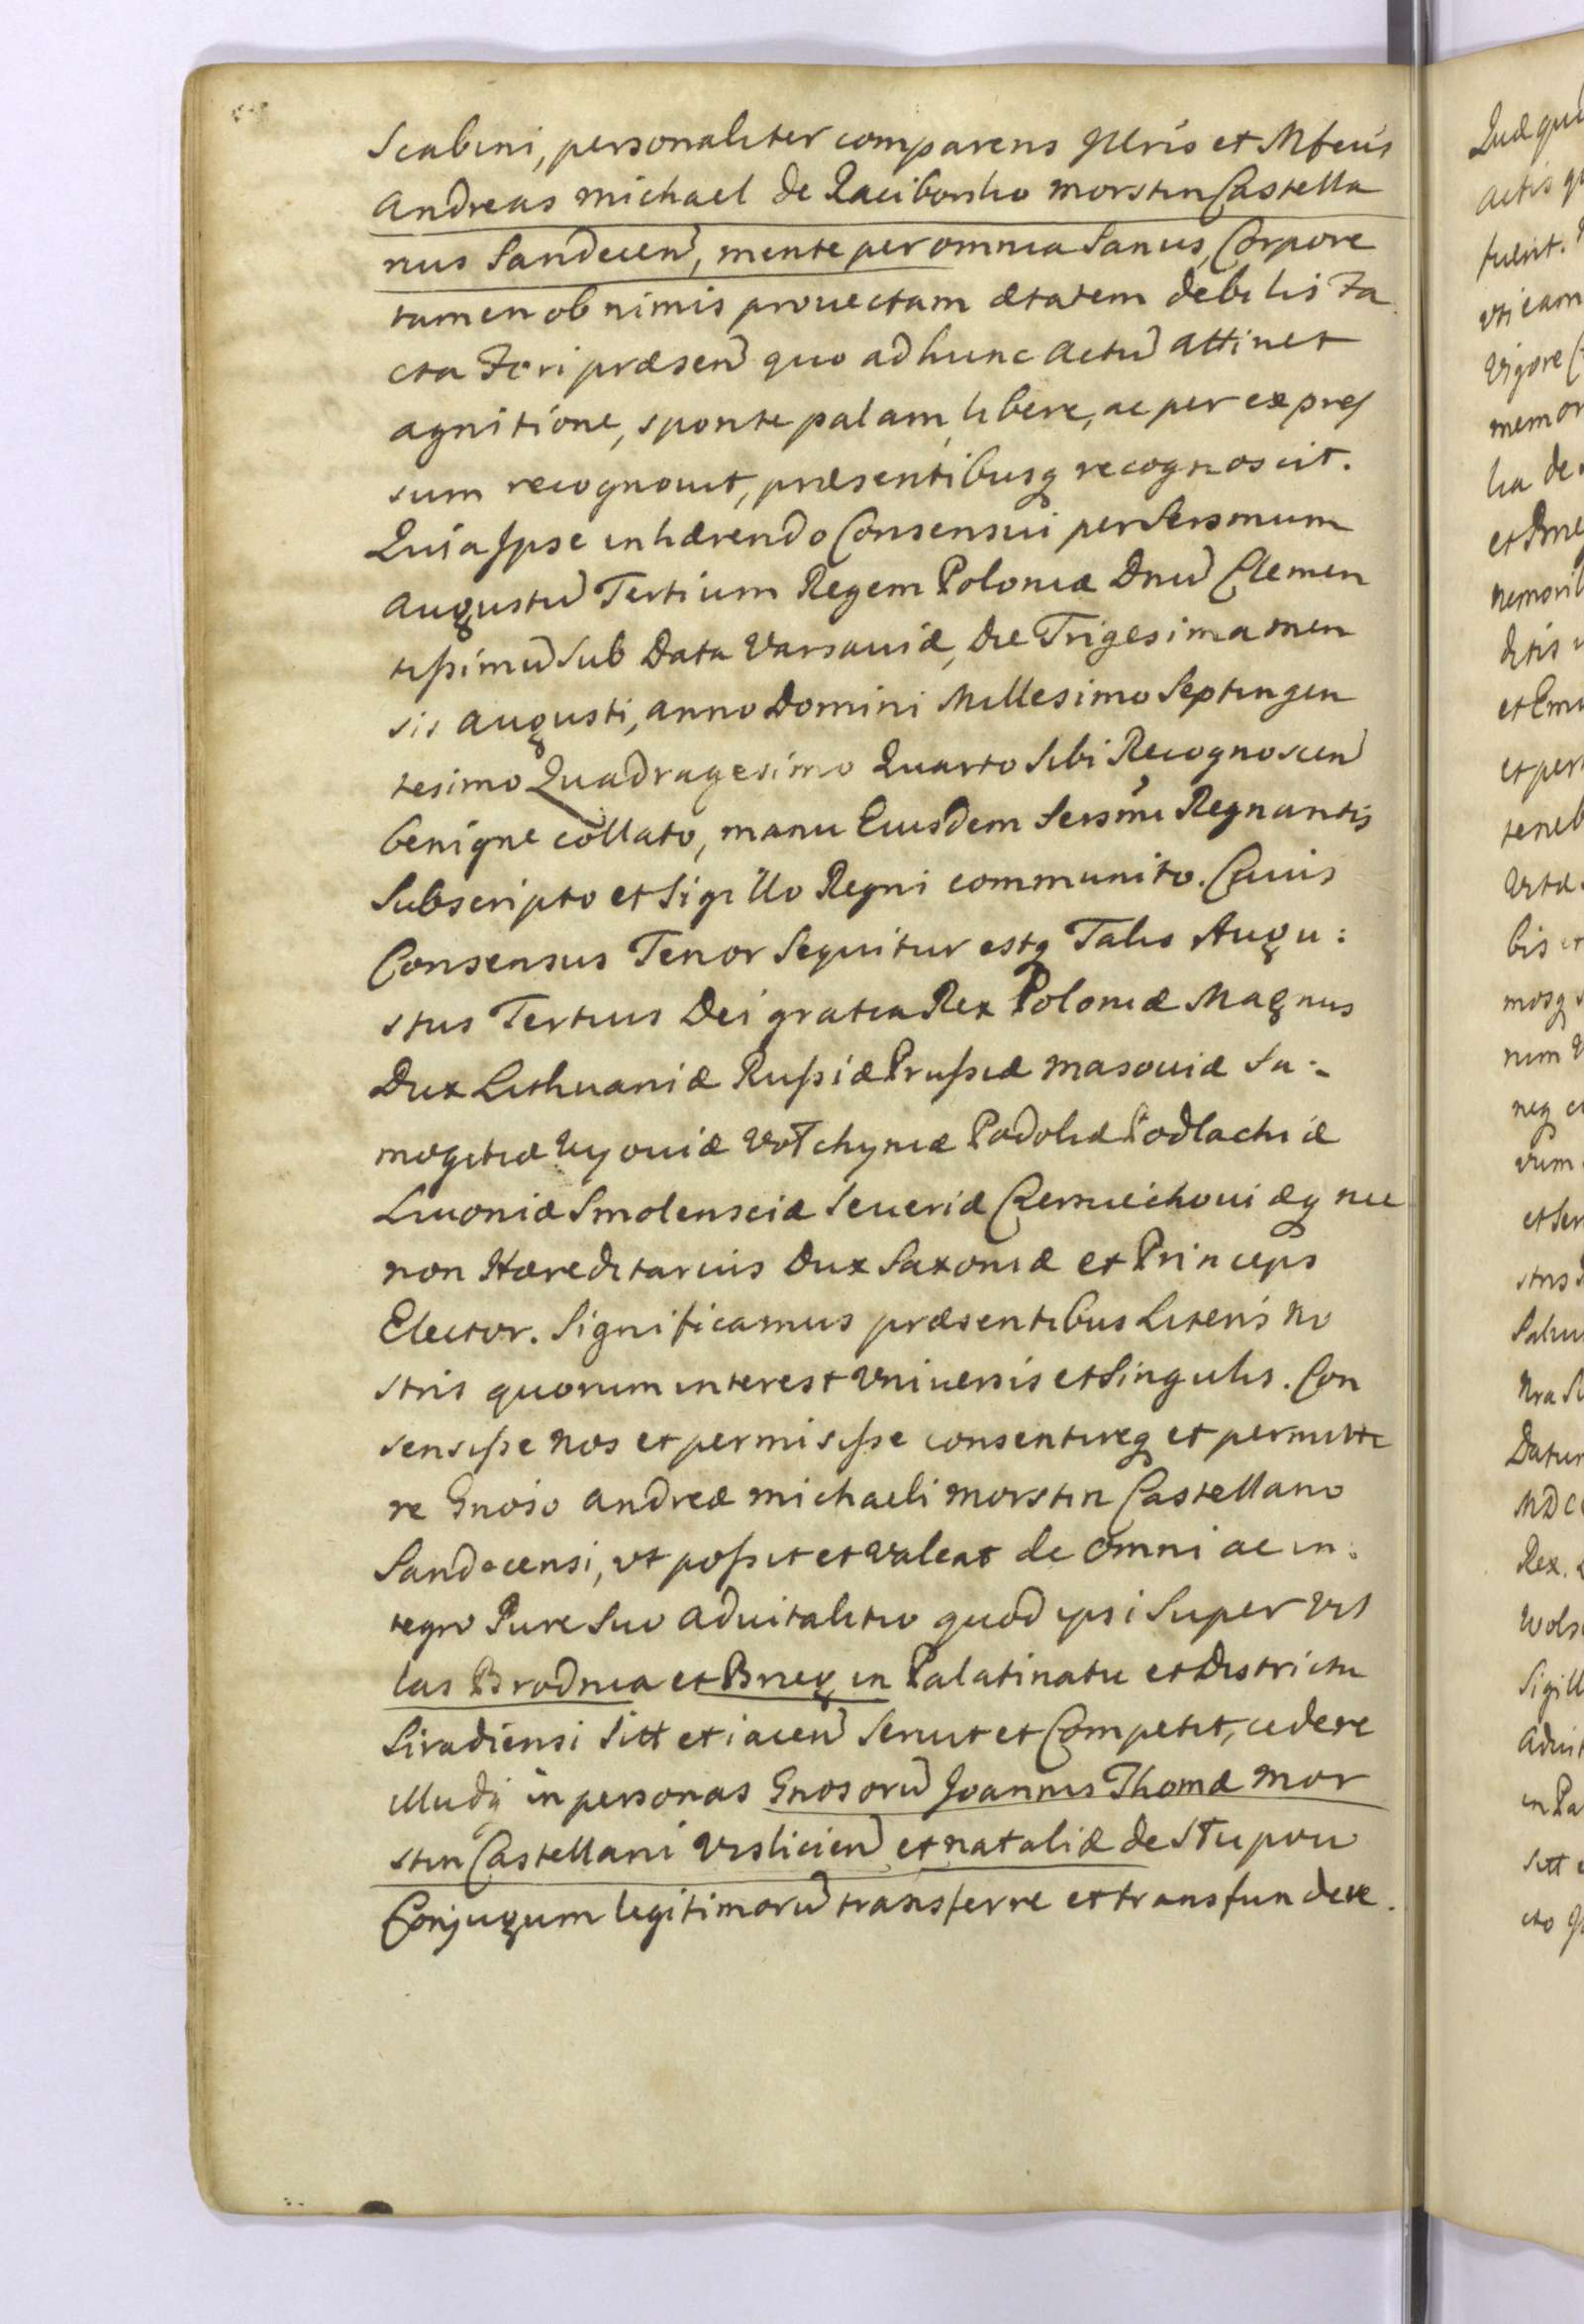 Scabini, personaliter comparens Illris et Mfcus
Andreas Michael de Raciborsko Morstin Castella
nus Sandecen, mente per omnia Sanus, Corpore
tamen ob nimis prouectam ætatem debilis Fa
cta Fori præsen quo ad hunc actu attinet
agnitione, sponte palam, libere, ac per expres
sum recognouit, præsentibusq recognoscit.
Quia Ipse inhærendo Consensui per Sersmum
Augustu Tertium Regem Poloniæ Dnu Clemen
tissimu Sub Data Varsauiæ, Die Trigesima men
sis Augusti, anno Domini Millesimo Septingen
tesimo Quadragesimo Quarto Sibi Recognoscen
benigne collato, manu Eiusdem Sersmi Regnantis
Subscripto et Sigillo Regni communito. Cuius
Consensus Tenor Sequitur estq Talis Augu:
stus Tertius Dei gratia Rex Poloniæ Magnus
Dux Lithuaniæ Russiæ Prussiæ Masouiæ Sa:
mogitiæ Kyouiæ Volchyniæ Podoliæ Podlachiæ
Liuoniæ Smolensciæ Seueriæ Czerniechouiæq nec
non Hæreditarius Dux Saxoniæ et Princeps
Elector. Significamus præsentibus Literis No
stris quorum interest Vniuersis et Singulis. Con
sensisse Nos et permisisse consentireq et permitte
re Gnoso Andreæ Michaeli Morstin Castellano
Sandecensi, vt possit et Valeat de Omni ac in:
tegro Jure Suo aduitalitio quod ipsi Super Vil
las Brodnia et Brzeg in Palatinatu et Districtu
Siradiensi Sitt et iacen Seruit et Competit, cedere
illudq in personas Gnosoru Joannis Thomæ Mor
stin Castellani Vislicien et Nataliæ de Stupow
Conjugum legitimoru transferre et transfundere.